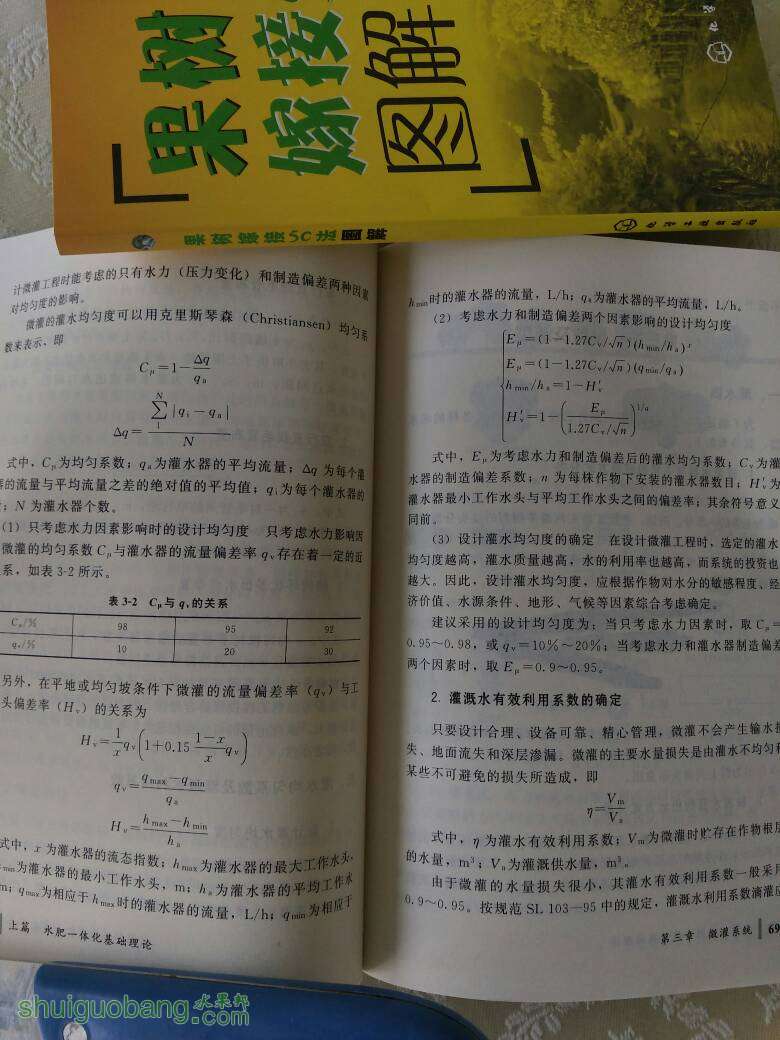 果树
嫁接
图解
果树嫁接5C法图解
化学工业出版社
计微灌工程时能考虑的只有水力（压力变化）和制造偏差两种因素
对均匀度的影响。
微灌的灌水均匀度可以用克里斯琴森（Christiansen）均匀系
数来表示，即
Cμ=1-Δq/qa
Δq=∑|qi-qa|/N
式中，Cμ为均匀系数；qa为灌水器的平均流量；Δq 为每个灌
的流量与平均流量之差的绝对值的平均值；qi为每个灌水器的
；N 为灌水器个数。
(1) 只考虑水力因素影响时的设计均匀度 只考虑水力影响因
微灌的均匀系数 Cμ与灌水器的流量偏差率 qv存在着一定的近
系，如表 3-2 所示。
表 3-2 Cμ与 qv的关系
Cμ/% 98 95 92
qv/% 10 20 30
另外，在平地或均匀坡条件下微灌的流量偏差率（qv）与工
头偏差率（Hv）的关系为
Hv=1/x qv(1+0.15 (1-x)/x qv)
qv=(qmax-qmin)/qa
Hv=(hmax-hmin)/ha
式中，x 为灌水器的流态指数；hmax为灌水器的最大工作水头，
min为灌水器的最小工作水头，m；ha为灌水器的平均工作水
m；qmax为相应于 hmax时的灌水器的流量，L/h；qmin为相应于
上篇 水肥一体化基础理论
hmin时的灌水器的流量，L/h；qa为灌水器的平均流量，L/h。
(2) 考虑水力和制造偏差两个因素影响的设计均匀度
Eμ=(1-1.27Cv/√n)(hmin/ha)^x
Eμ=(1-1.27Cv/√n)(qmin/qa)
hmin/ha=1-H′v
H′v=1-(Eμ/(1.27Cv/√n))^(1/a)
式中，Eμ为考虑水力和制造偏差后的灌水均匀系数；Cv为灌
水器的制造偏差系数；n 为每株作物下安装的灌水器数目；H′v为
灌水器最小工作水头与平均工作水头之间的偏差率；其余符号意义
同前。
(3) 设计灌水均匀度的确定 在设计微灌工程时，选定的灌水
均匀度越高，灌水质量越高，水的利用率也越高，而系统的投资也
越大。因此，设计灌水均匀度，应根据作物对水分的敏感程度、经
济价值、水源条件、地形、气候等因素综合考虑确定。
建议采用的设计均匀度为：当只考虑水力因素时，取 Cμ=
0.95～0.98，或 qv=10%～20%；当考虑水力和灌水器制造偏差
两个因素时，取 Eμ=0.9～0.95。
2. 灌溉水有效利用系数的确定
只要设计合理、设备可靠、精心管理，微灌不会产生输水损
失、地面流失和深层渗漏。微灌的主要水量损失是由灌水不均匀和
某些不可避免的损失所造成，即
η=Vm/Va
式中，η 为灌水有效利用系数；Vm为微灌时贮存在作物根层
的水量，m³；Va为灌溉供水量，m³。
由于微灌的水量损失很小，其灌水有效利用系数一般采用
0.9～0.95。按规范 SL 103—95 中的规定，灌溉水利用系数滴灌应
第三章 微灌系统 69
shuiguobang.com
水果邦